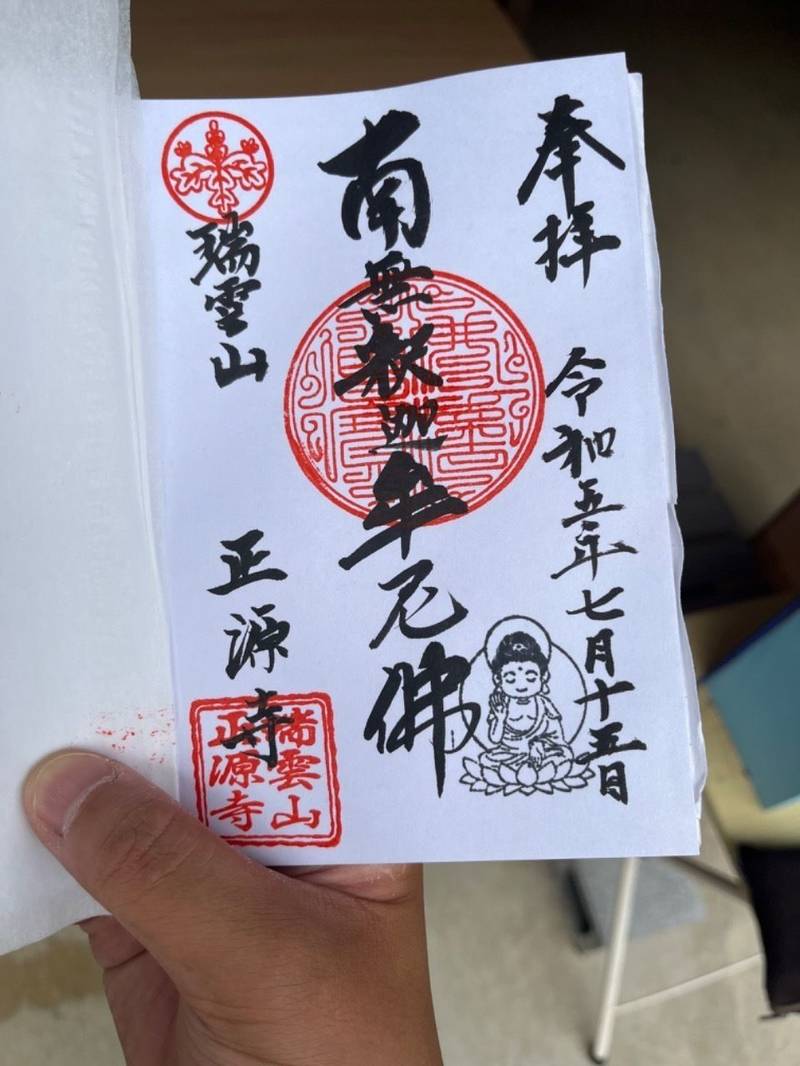 奉拝 令和五年七月十五日
南無釈迦牟尼佛
瑞雲山 正源寺
瑞雲山
正源寺